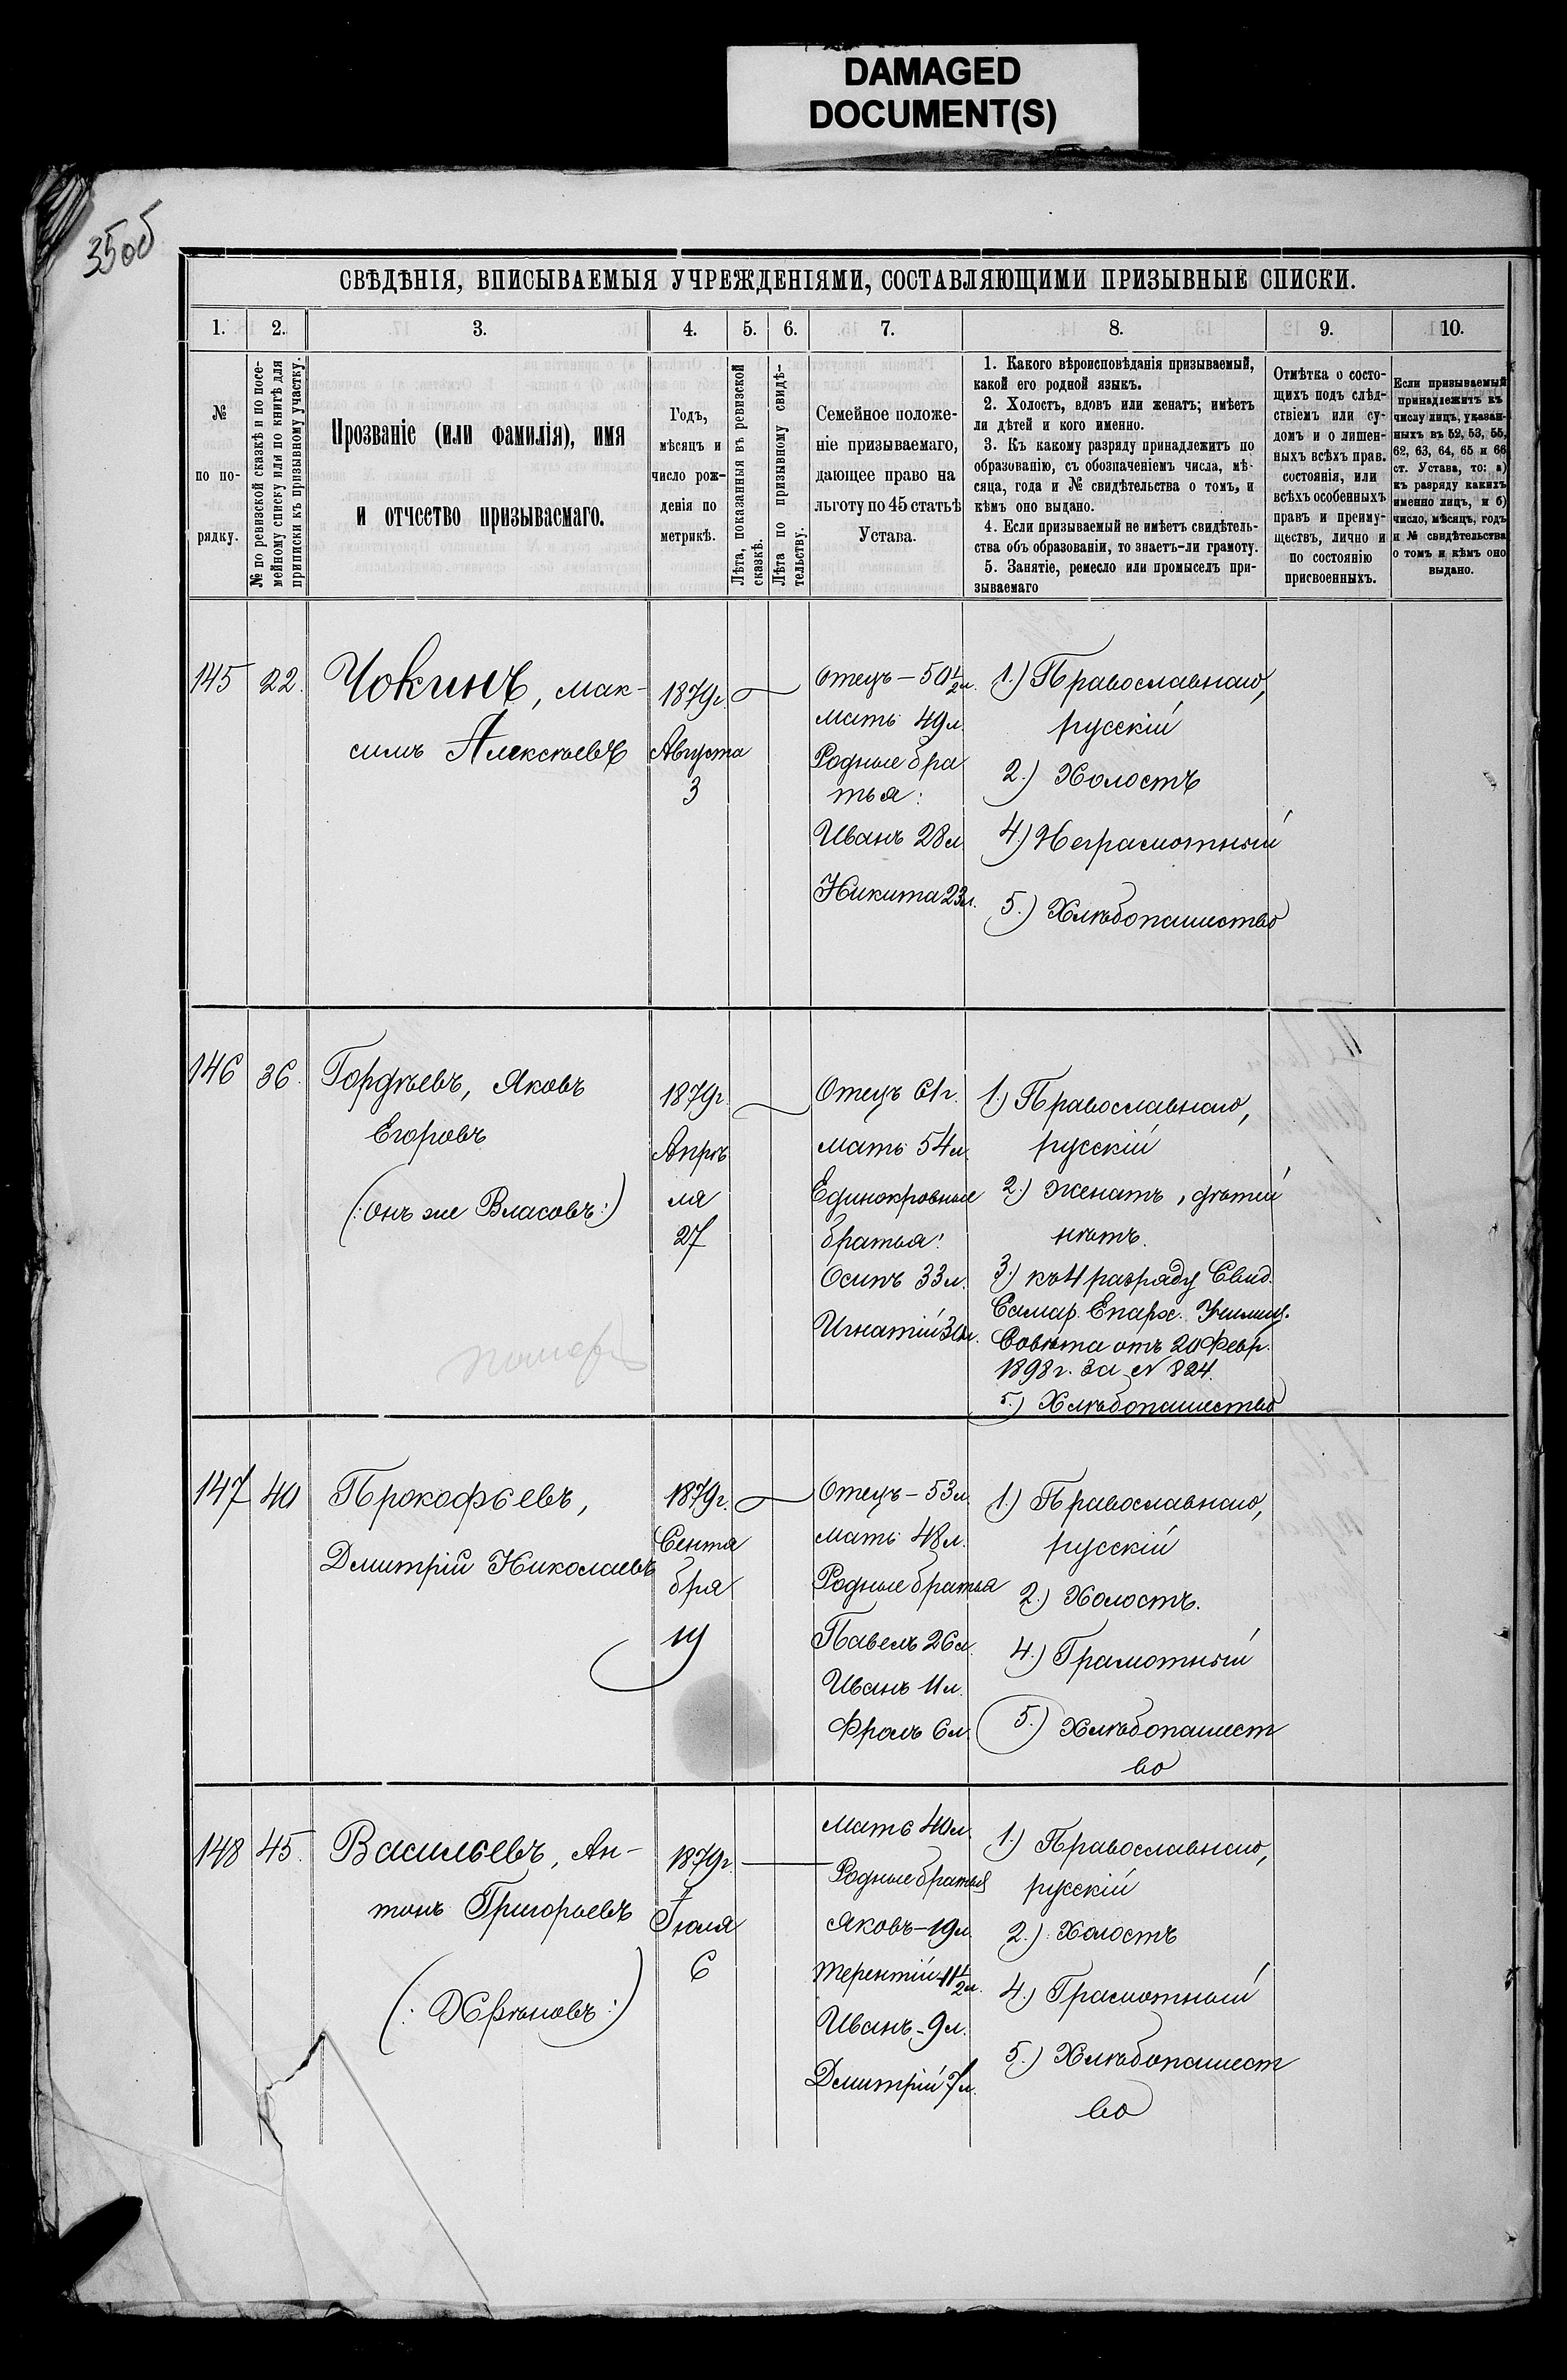 DAMAGED
DOCUMENT(S)
35об
СВѢДѢНІЯ, ВПИСЫВАЕМЫЯ УЧРЕЖДЕНІЯМИ, СОСТАВЛЯЮЩИМИ ПРИЗЫВНЫЕ СПИСКИ.
1. 2. 3. 4. 5. 6. 7. 8. 9. 10.
№
по по-
рядку.
№ по ревизской сказкѣ и по посе-
мейному списку или по книгѣ для
приписки къ призывному участку.
Прозваніе (или фамилія), имя
и отчество призываемаго.
Годъ,
мѣсяцъ и
число рож-
денія по
метрикѣ.
Лѣта, показанныя въ ревизской
сказкѣ.
Лѣта по призывному свидѣ-
тельству.
Семейное положе-
ніе призываемаго,
дающее право на
льготу по 45 статьѣ
Устава.
1. Какого вѣроисповѣданія призываемый,
какой его родной языкъ.
2. Холостъ, вдовъ или женатъ; имѣетъ
ли дѣтей и кого именно.
3. Къ какому разряду принадлежитъ по
образованію, съ обозначеніемъ числа, мѣ-
сяца, года и № свидѣтельства о томъ, и
кѣмъ оно выдано.
4. Если призываемый не имѣетъ свидѣтель-
ства объ образованіи, то знаетъ-ли грамоту.
5. Занятіе, ремесло или промыселъ при-
зываемаго
Отмѣтка о состо-
щихъ подъ слѣд-
ствіемъ или су-
домъ и о лишен-
ныхъ всѣхъ прав.
состоянія, или
всѣхъ особенныхъ
правъ и преиму-
ществъ, лично и
по состоянію
присвоенныхъ.
Если призываемый
принадлежитъ къ
числу лицъ, указан-
ныхъ въ 52, 53, 55,
62, 63, 64, 65 и 66
ст. Устава, то: а)
къ разряду какихъ
именно лицъ, и б)
число, мѣсяцъ, годъ
и № свидѣтельства
о томъ и кѣмъ оно
выдано.
145
22.
Чокинъ, Мак-
симъ Алексѣевъ
1879г.
Августа
3
Отецъ — 50 1/2 л.
Мать 49 л.
Родные бра
тья:
Иванъ 28 л
Никита 23 л.
1.) Православнаго,
русскій
2.) Холостъ
4.) Неграмотный
5.) Хлѣбопашество
146
36.
Гордѣевъ, Яковъ
Егоровъ
(: онъ же Власовъ :)
1879г.
Апрѣ
ля
27
Отецъ 61 г.
Мать 54 л.
Единокровные
братья:
Осипъ 33 л.
Игнатій 30 л.
1.) Православнаго,
русскій
2.) Женатъ, дѣтей
нѣтъ.
3.) къ 4 разряду Свид.
Самар. Епарх. Училищ.
Совѣта отъ 20 Февр.
1898 г. за № 824.
5.) Хлѣбопашество
147
40
Прокофьевъ,
Дмитрій Николаевъ
1879г.
Сентя
бря
19
Отецъ — 53 л.
Мать 48 л.
Родные братья
Павелъ 26 л.
Иванъ 11 л.
Фролъ 6 л.
1.) Православнаго,
русскій
2.) Холостъ.
4.) Грамотный
5.) Хлѣбопашест
во
148
45.
Васильевъ, Ан-
тонъ Григорьевъ
1879г.
Іюля
6
Мать 40 л.
Родные братья
Яковъ — 19 л.
Терентій 11 1/2 л.
Иванъ - 9 л.
Дмитрій 7 л.
1.) Православнаго,
русскій
2.) Холостъ
4.) Грамотный
5.) Хлѣбопашест
во